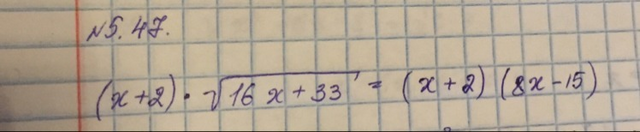 №5.47.
(x+2)·√(16x+33) = (x+2)(8x-15)